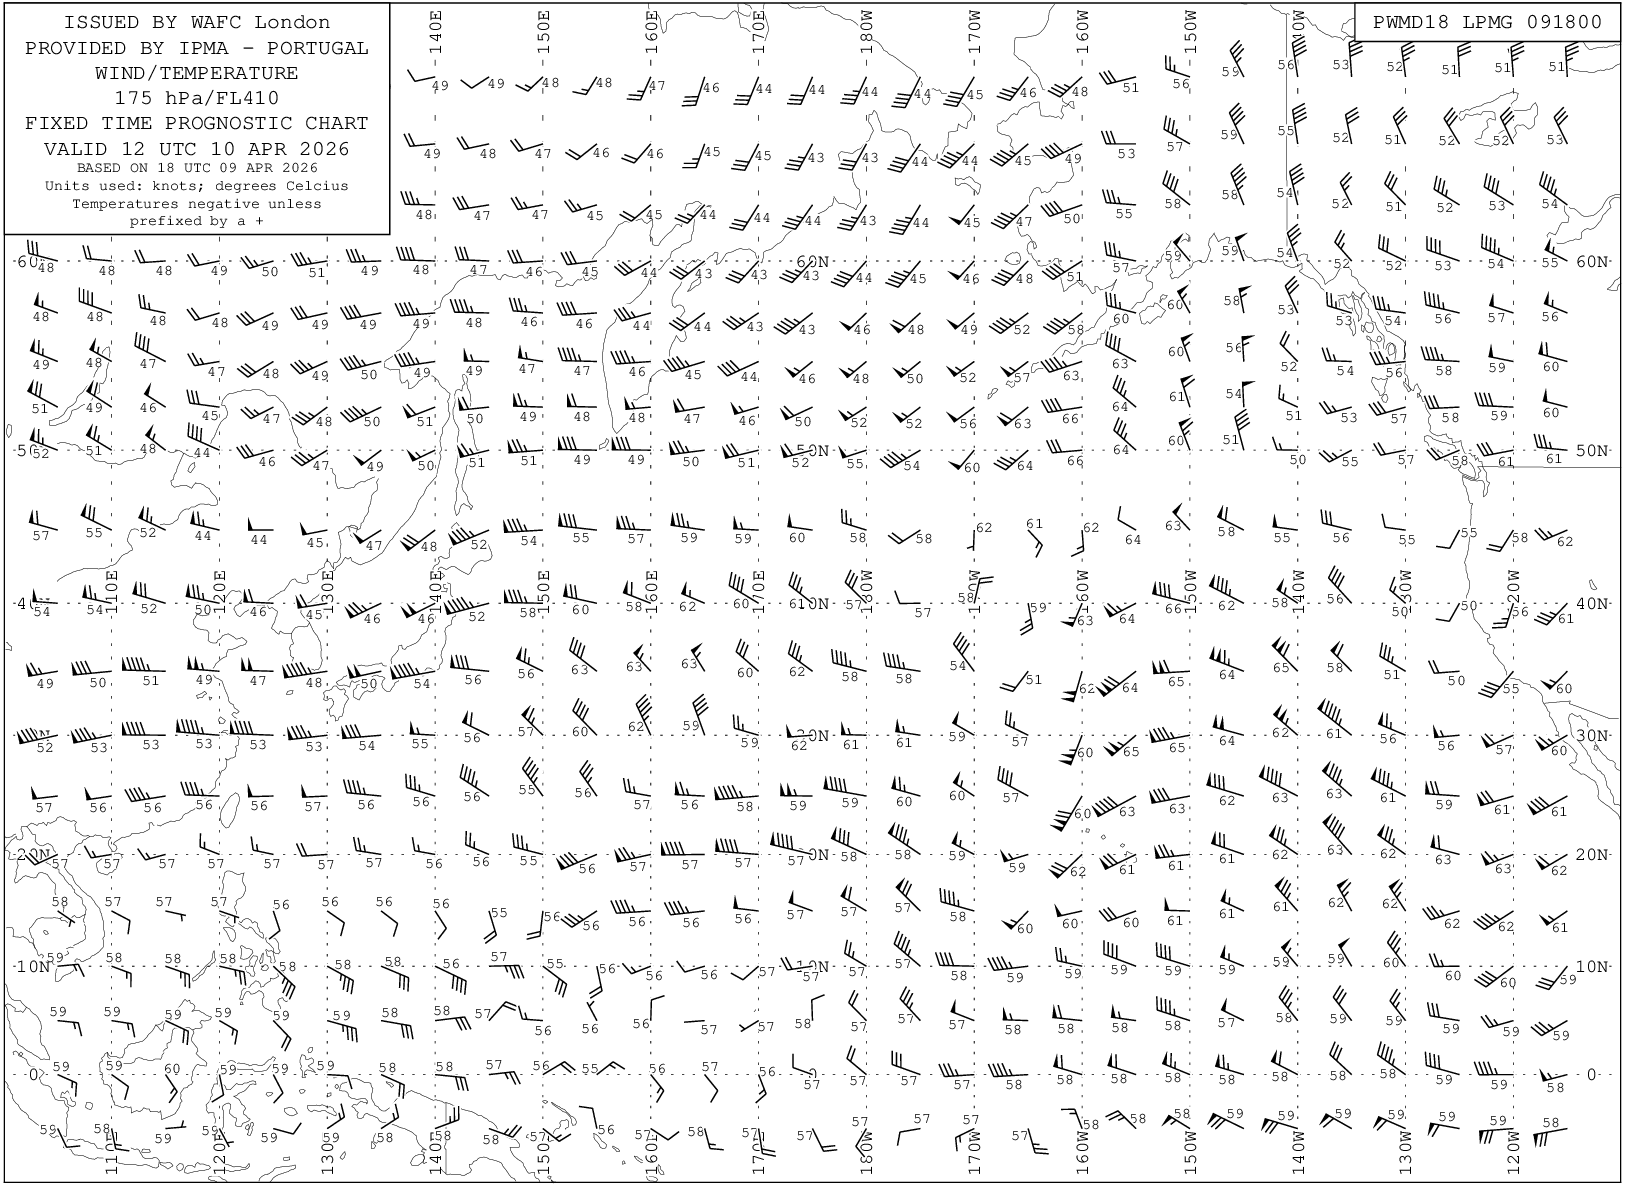 ISSUED BY WAFC London
PROVIDED BY IPMA - PORTUGAL
WIND/TEMPERATURE
175 hPa/FL410
FIXED TIME PROGNOSTIC CHART
VALID 12 UTC 10 APR 2026
BASED ON 18 UTC 09 APR 2026
Units used: knots; degrees Celcius
Temperatures negative unless
prefixed by a +
PWMD18 LPMG 091800
140E 150E 160E 170E 180W 170W 160W 150W 140W
49 49 48 48 47 46 44 44 44 44 45 46 48 51 56 59 56 53 52 51 51 51
49 48 47 46 46 45 45 43 43 44 44 45 49 53 57 59 55 52 51 52 52 53
48 47 47 45 45 44 44 44 43 44 45 47 50 55 58 58 54 52 51 52 53 54
60N 60N
48 48 48 49 50 51 49 48 47 46 45 44 43 43 43 44 45 46 48 51 57 59 59 54 52 52 53 54 55
48 48 48 48 49 49 49 49 48 46 46 44 44 43 43 46 48 49 52 58 60 60 58 53 53 54 56 57 56
49 48 47 47 48 49 50 49 49 47 47 46 45 44 46 48 50 52 57 63 63 60 56 52 54 56 58 59 60
51 49 46 45 47 48 50 51 50 49 48 48 47 46 50 52 52 56 63 66 64 61 54 51 53 57 58 59 60
50N
52 51 48 44 46 47 49 50 51 51 49 49 50 51 52 55 54 60 64 66 64 60 51 50 55 57 58 61 61
57 55 52 44 44 45 47 48 52 54 55 57 59 59 60 58 58 62 61 62 64 63 58 55 56 55 55 58 62
110E 120E 130E 140E 150E 160E 170E 180W 170W 160W 150W 140W 130W 120W
40N
54 54 52 50 46 45 46 46 52 58 60 58 62 60 61 57 57 58 59 63 64 66 62 58 56 50 50 56 61
49 50 51 49 47 48 50 54 56 56 63 63 63 60 62 58 58 54 51 62 64 65 64 65 58 51 50 55 60
30N
52 53 53 53 53 53 54 55 56 57 60 62 59 59 62 61 61 59 57 60 65 65 64 62 61 56 56 57 60
57 56 56 56 56 57 56 56 56 55 56 57 56 58 59 59 60 60 57 60 63 63 62 63 61 61 59 61 61
20N 20N
57 57 57 57 57 57 57 56 56 55 56 57 57 57 57 58 58 59 59 62 61 61 61 62 63 62 63 63 62
58 57 57 57 56 56 56 56 55 56 56 56 56 56 57 57 57 58 60 60 60 61 61 61 62 62 62 62 61
10N 10N
59 58 58 58 58 58 58 56 57 55 56 56 56 57 57 57 57 58 59 59 59 59 59 59 59 60 60 60 59
59 59 59 59 59 59 58 58 57 56 56 56 57 57 58 57 57 57 58 58 58 58 57 58 59 59 59 59 59
0 0
59 59 60 59 59 59 58 58 57 56 55 56 57 56 57 57 58 58 58 58 58 58 58 58 58 58 59 59 58
59 58 59 59 59 59 58 58 58 57 56 57 58 57 57 58 57 57 57 58 58 58 59 59 59 59 59 59 58
110E 120E 130E 140E 150E 160E 170E 180W 170W 160W 150W 140W 130W 120W